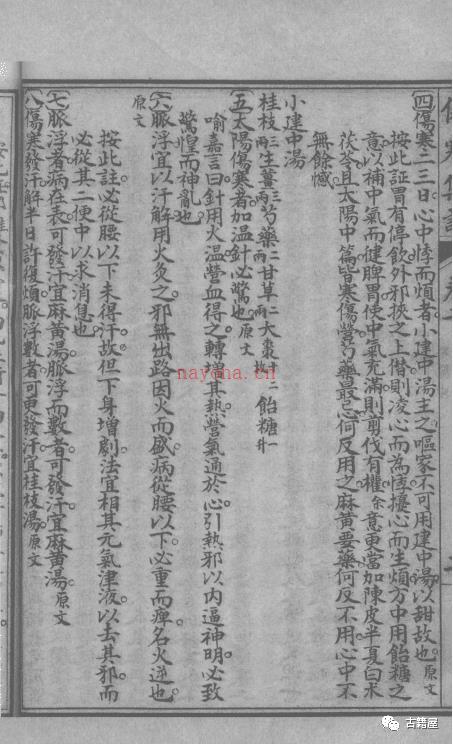 四傷寒二三日心中悸而煩者小建中湯主之嘔家不可用建中湯以甜故也原文
按此証胃有停飲外邪挾之上僭則凌心而為悸擾心而生煩方中用飴糖之
意以補中氣而健脾胃使中氣充滿則剪伐有權余意更當加陳皮半夏白朮
茯苓且太陽中篇皆寒傷營芍藥最忌何反用之麻黃要藥何反不用心中不
無餘憾
小建中湯
桂枝三兩生薑三兩芍藥二兩甘草二兩大棗枚飴糖一升
五太陽傷寒者加温針必驚也原文
喻嘉言曰針用火温營血得之轉增其熱營氣通於心引熱邪以內逼神明必致
驚惶而神亂也
六脈浮宜以汗解用火灸之邪無出路因火而盛病從腰以下必重而痺名火逆也
原文
按此註必從腰以下未得汗故但下身增劇法宜相其元氣津液以去其邪而
必從其二便中以求消息也
七脈浮者病在表可發汗宜麻黃湯脈浮而數者可發汗宜麻黃湯原文
八傷寒發汗解半日許復煩脈浮數者可更發汗宜桂枝湯原文
nayona.cn
古籍屋